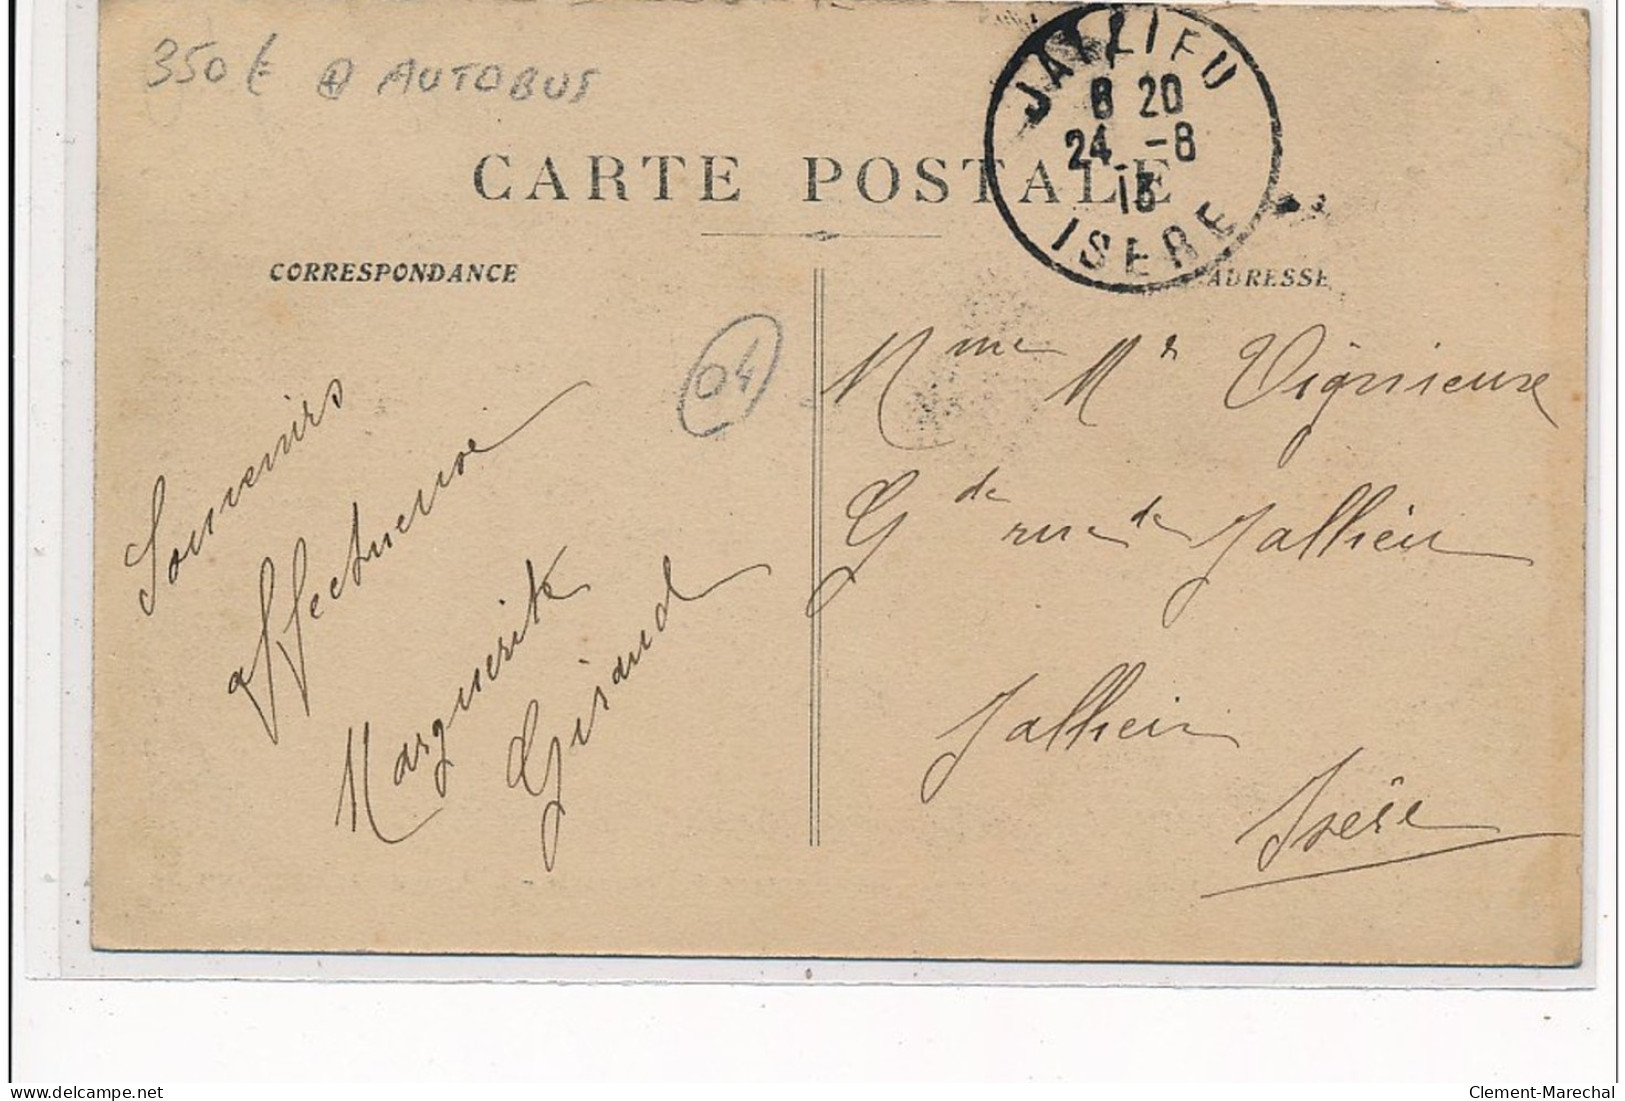 350 € @ AUTOBUS
JALLIEU
8 20
24 -8
13
ISERE
CARTE POSTALE
CORRESPONDANCE
ADRESSE
04
Souvenirs
affectueuse
Marguerite
Giraud
Mme Mr Vignieuse
Gde rue de Jallieu
Jallieu
Isère
delcampe.net
Clement-Marechal